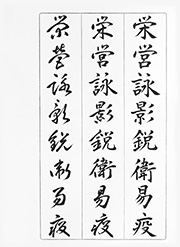 栄営詠影鋭衛易疫
栄営詠影鋭衛易疫
栄営詠影鋭衛易疫